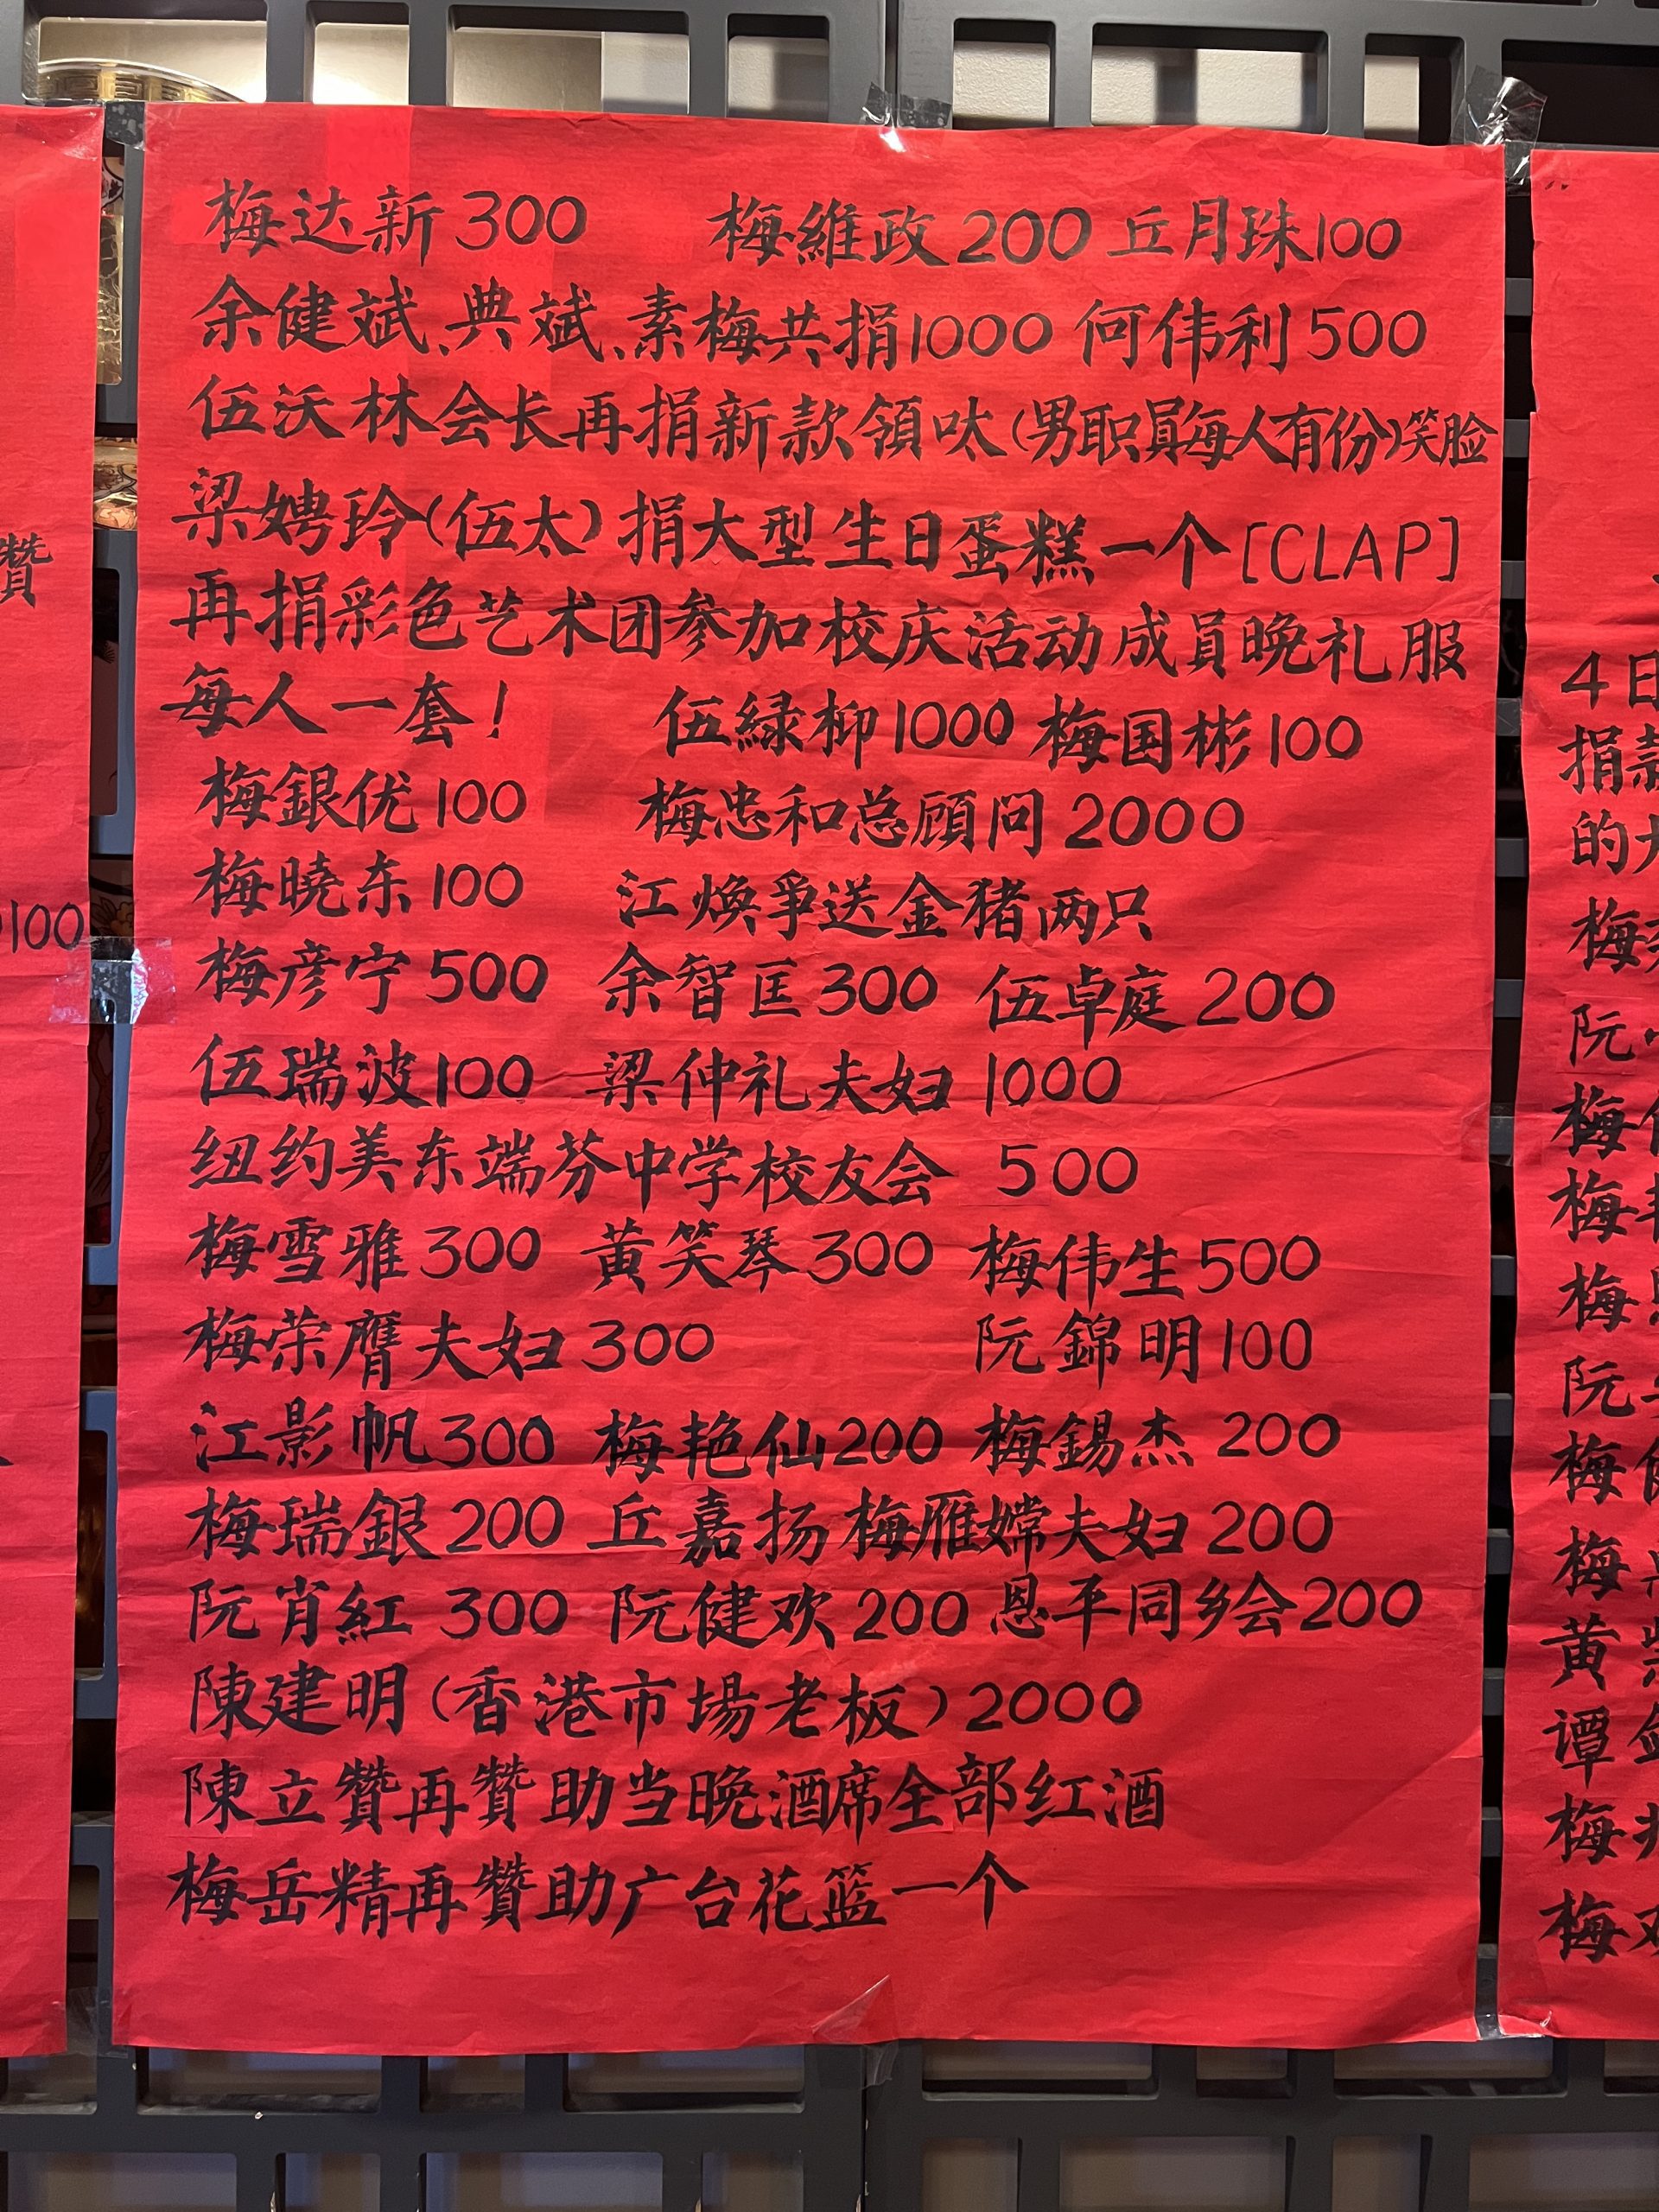 梅达新300 梅維政200 丘月珠100
余健斌、典斌、素梅共捐1000 何伟利500
伍沃林会长再捐新款領呔(男职員每人有份)笑脸
梁娉玲(伍太)捐大型生日蛋糕一个[CLAP]
再捐彩色艺术团参加校庆活动成員晚礼服
每人一套! 伍緑柳1000 梅国彬100
梅銀优100 梅忠和总顧问2000
梅曉东100 江煥爭送金猪两只
梅彦宁500 余智匡300 伍卓庭200
伍瑞波100 梁仲礼夫妇1000
纽约美东端芬中学校友会 500
梅雪雅300 黄笑琴300 梅伟生500
梅荣膺夫妇300 阮錦明100
江影帆300 梅艳仙200 梅錫杰200
梅瑞銀200 丘嘉扬梅雁嫦夫妇200
阮肖紅300 阮健欢200 恩平同乡会200
陳建明(香港市場老板)2000
陳立贊再贊助当晚酒席全部红酒
梅岳精再贊助广台花篮一个
贊
100
4日
捐款
的
梅
阮
梅
梅
梅
阮
梅
梅
黄
谭
梅
梅